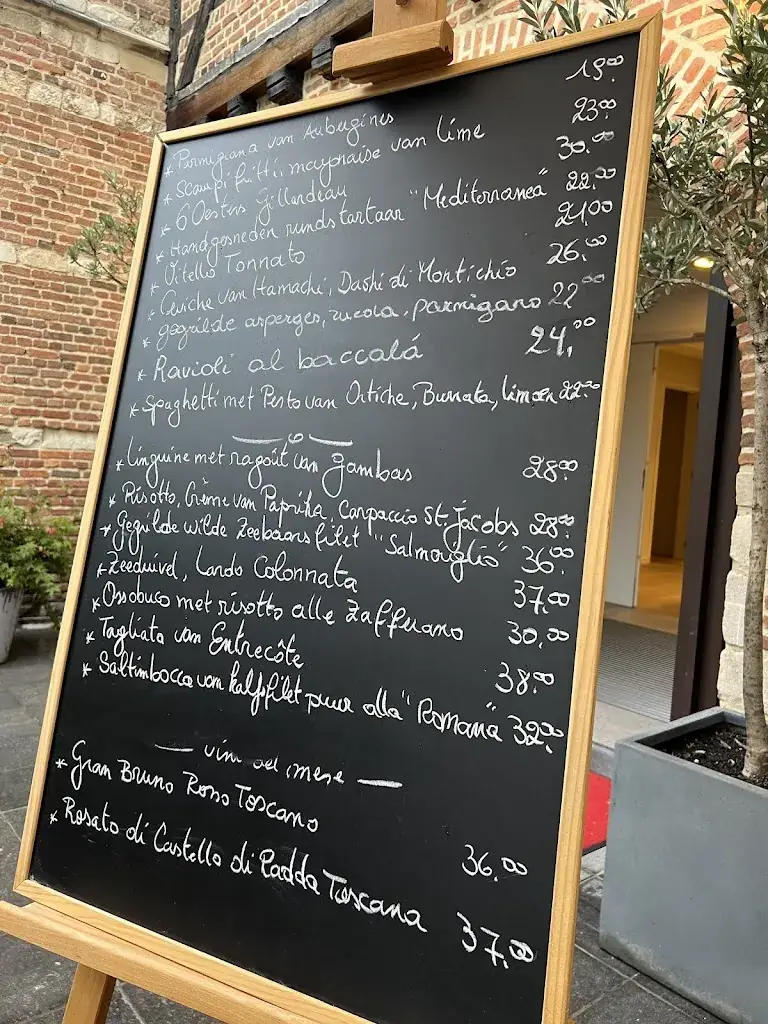 * Parmigiana van Aubergines 19.00
* Scampi fritti, mayonaise van lime 23.00
* 6 Oesters Gillardeau 30.00
* Handgesneden rundstartaar "Mediterranea" 22.00
* Vitello Tonnato 21.00
* Ceviche van Hamachi, Dashi di Montichio 26.00
* gegrilde asperges, rucola, parmigano 22.00
* Ravioli al baccalá 24.00
* Spaghetti met Pesto van Ortiche, Burrata, limoen 22.00
* Linguine met ragoût van gambas 28.00
* Risotto, Crème van Paprika, Carpaccio St. Jacobs 28.00
* Gegrilde wilde Zeebaarsfilet "Salmoriglio" 36.00
* Zeeduivel, Lardo Colonnata 37.00
* Ossobuco met risotto alle Zafferano 30.00
* Tagliata van Entrecôte 38.00
* Saltimbocca van kalfsfilet puur alla "Romana" 32.00
— vini del mese —
* Gran Bruno Rosso Toscano 36.00
* Rosato di Castello di Radda Toscana 37.00